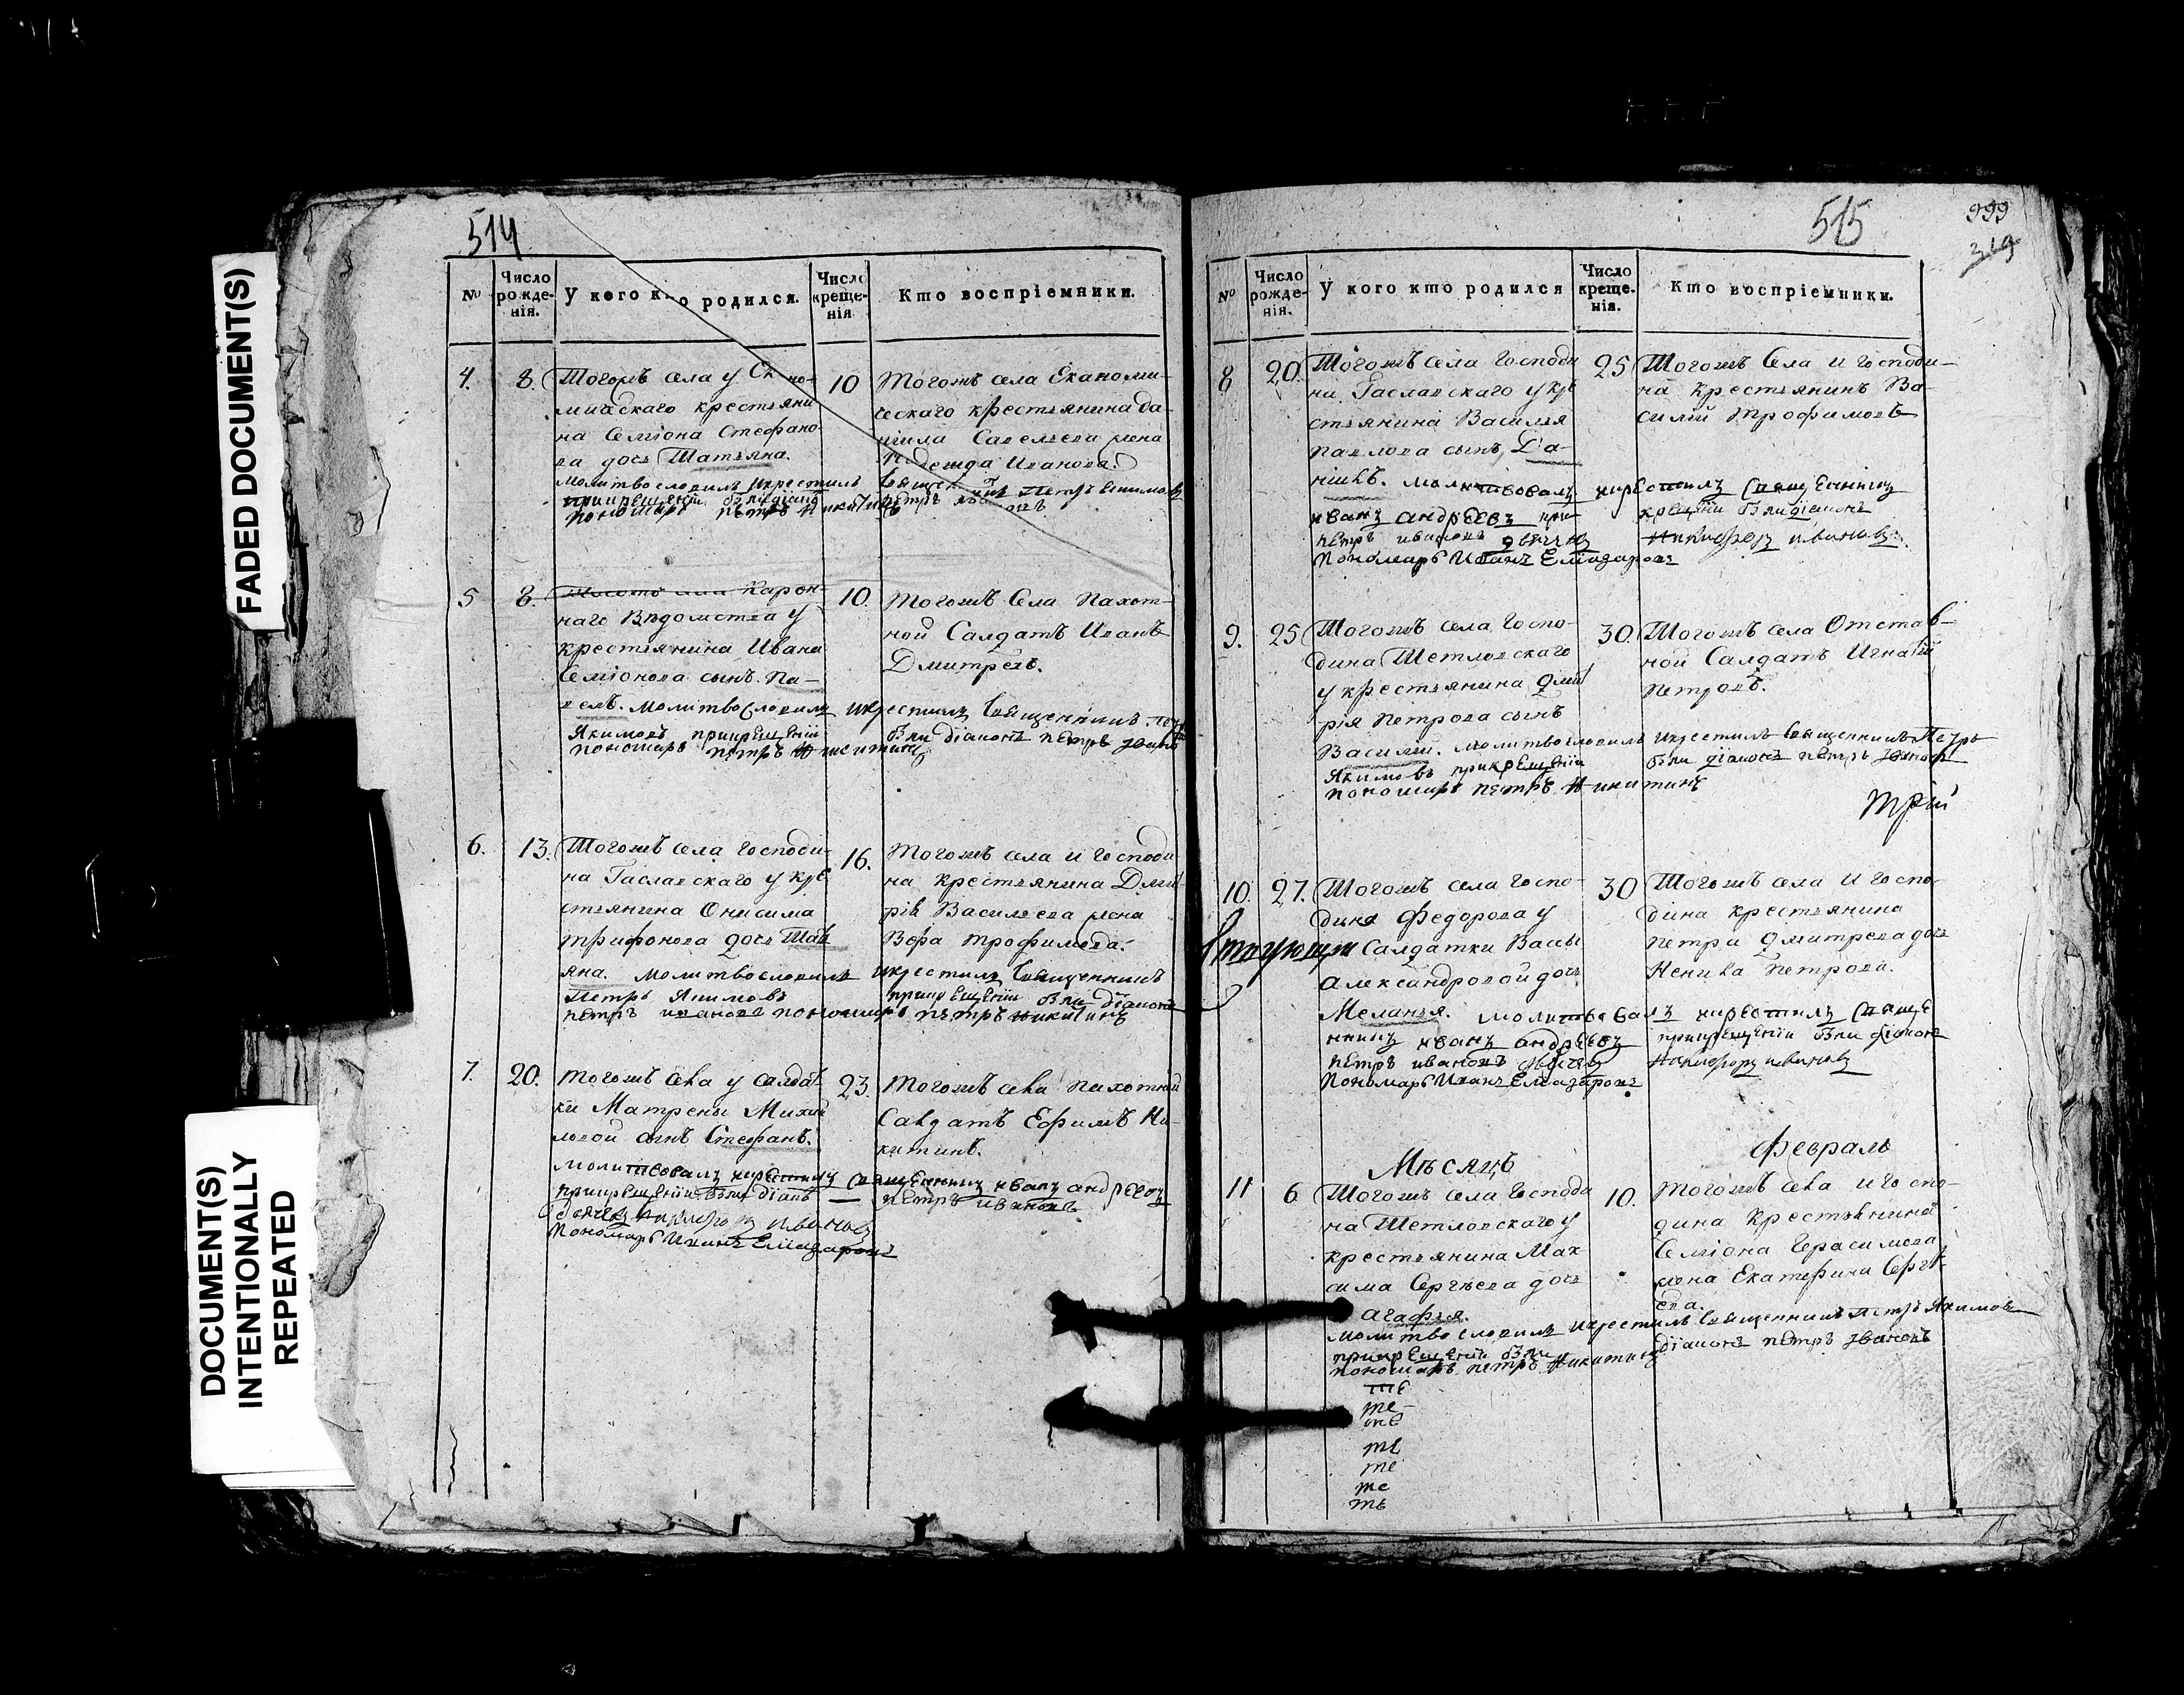 FADED DOCUMENT(S)
DOCUMENT(S)
INTENTIONALLY
REPEATED
514
№
Число рожде-нія.
У кого кто родился.
Число креще-нія
Кто воспріемники.
4. 8.
Тогожъ села у Эконо-
мическаго крестьяни
на Семіона Стефано-
ва дочь Татьяна.
молитвословилъ икрестилъ
прикрещеніи были діаконъ
пономарь петръ Никитинъ
10
Тогожъ села Економи-
ческаго крестьянина да-
ніила Савельева жена
Надежда Иванова.
Священникъ Петръ Екимовъ
петръ
5 8.
Тогожъ села Карон-
наго Вѣдомства у
крестьянина Ивана
Семіонова сынъ Па-
велъ. молитвословилъ икрестилъ Священникъ Петръ
Якимовъ прикрещеніи были діаконъ петръ Ивановъ
пономарь петръ Никитинъ
10.
Тогожъ Села Пахот-
ной Салдатъ Иванъ
Дмитревъ.
6. 13.
Тогожъ села Господи-
на Гаславскаго у кре
стьянина Онисима
трифонова дочь Тать
яна. молитвословилъ икрестилъ Священникъ
Петръ Якимовъ прикрещеніи были діаконъ
петръ ивановъ пономарь петръ Никитинъ
16.
Тогожъ села и Господи
на крестьянина Дмит
рія Васильева жена
Вера трофимова.
7. 20.
Тогожъ села у салдат
ки Матрены Михай
ловой сынъ Стефанъ.
молитвовалъ икрестилъ Священникъ иванъ андреевъ
прикрещеніи были діаконъ петръ ивановъ
дьячекъ Никифоръ ивановъ
Пономарь Иванъ Елиазаровъ
23.
Тогожъ села пахотной
Салдатъ Ефимъ Ни-
китинъ.
515
999
319
№
Число рожде-нія.
У кого кто родился
Число креще-нія.
Кто воспріемники.
8 20.
Тогожъ села Господи
на Гаславскаго у кре
стьянина Василья
Павлова сынъ Да-
ніилъ. молитвовалъ икрестилъ Священникъ
иванъ андреевъ при крещеніи были діаконъ
петръ ивановъ дьячекъ Никифоръ ивановъ
Пономарь Иванъ Елиазаровъ
25
Тогожъ Села и Господи-
на крестьянинъ Ва-
силій трофимовъ
9. 25
Тогожъ села Госпо-
дина Шетловскаго
у крестьянина Дмит
рія Петрова сынъ
Василій. молитвословилъ икрестилъ Священникъ Петръ
Якимовъ прикрещеніи были діаконъ петръ Ивановъ
пономарь петръ Никитинъ
30.
Тогожъ села Отстав-
ной Салдатъ Игнатій
петровъ.
трій
10. 27.
Тогожъ села Госпо-
дина Федорова у
Салдатки Васы
Александровой дочь
Меланья. молитвовалъ икрестилъ Священ
никъ иванъ андреевъ прикрещеніи были діаконъ
петръ ивановъ дьячекъ Никифоръ ивановъ
Пономарь Иванъ Елиазаровъ
30
Тогожъ села и Госпо-
дина крестьянина
петра Дмитрева дочь
Ненила Петрова.
Мѣсяцъ Февраль
11 6
Тогожъ села Господи
на Шетловскаго у
крестьянина Мак
сима Сергѣева дочь
агафья.
молитвословилъ икрестилъ Священникъ Петръ Якимовъ
прикрещеніи были діаконъ петръ Ивановъ
пономарь петръ Никитинъ
10.
Тогожъ села и Госпо-
дина Крестьянина
Семіона Герасимова
жена Екатерина Сергѣ-
ева.
те
те
те
те
те
те
те